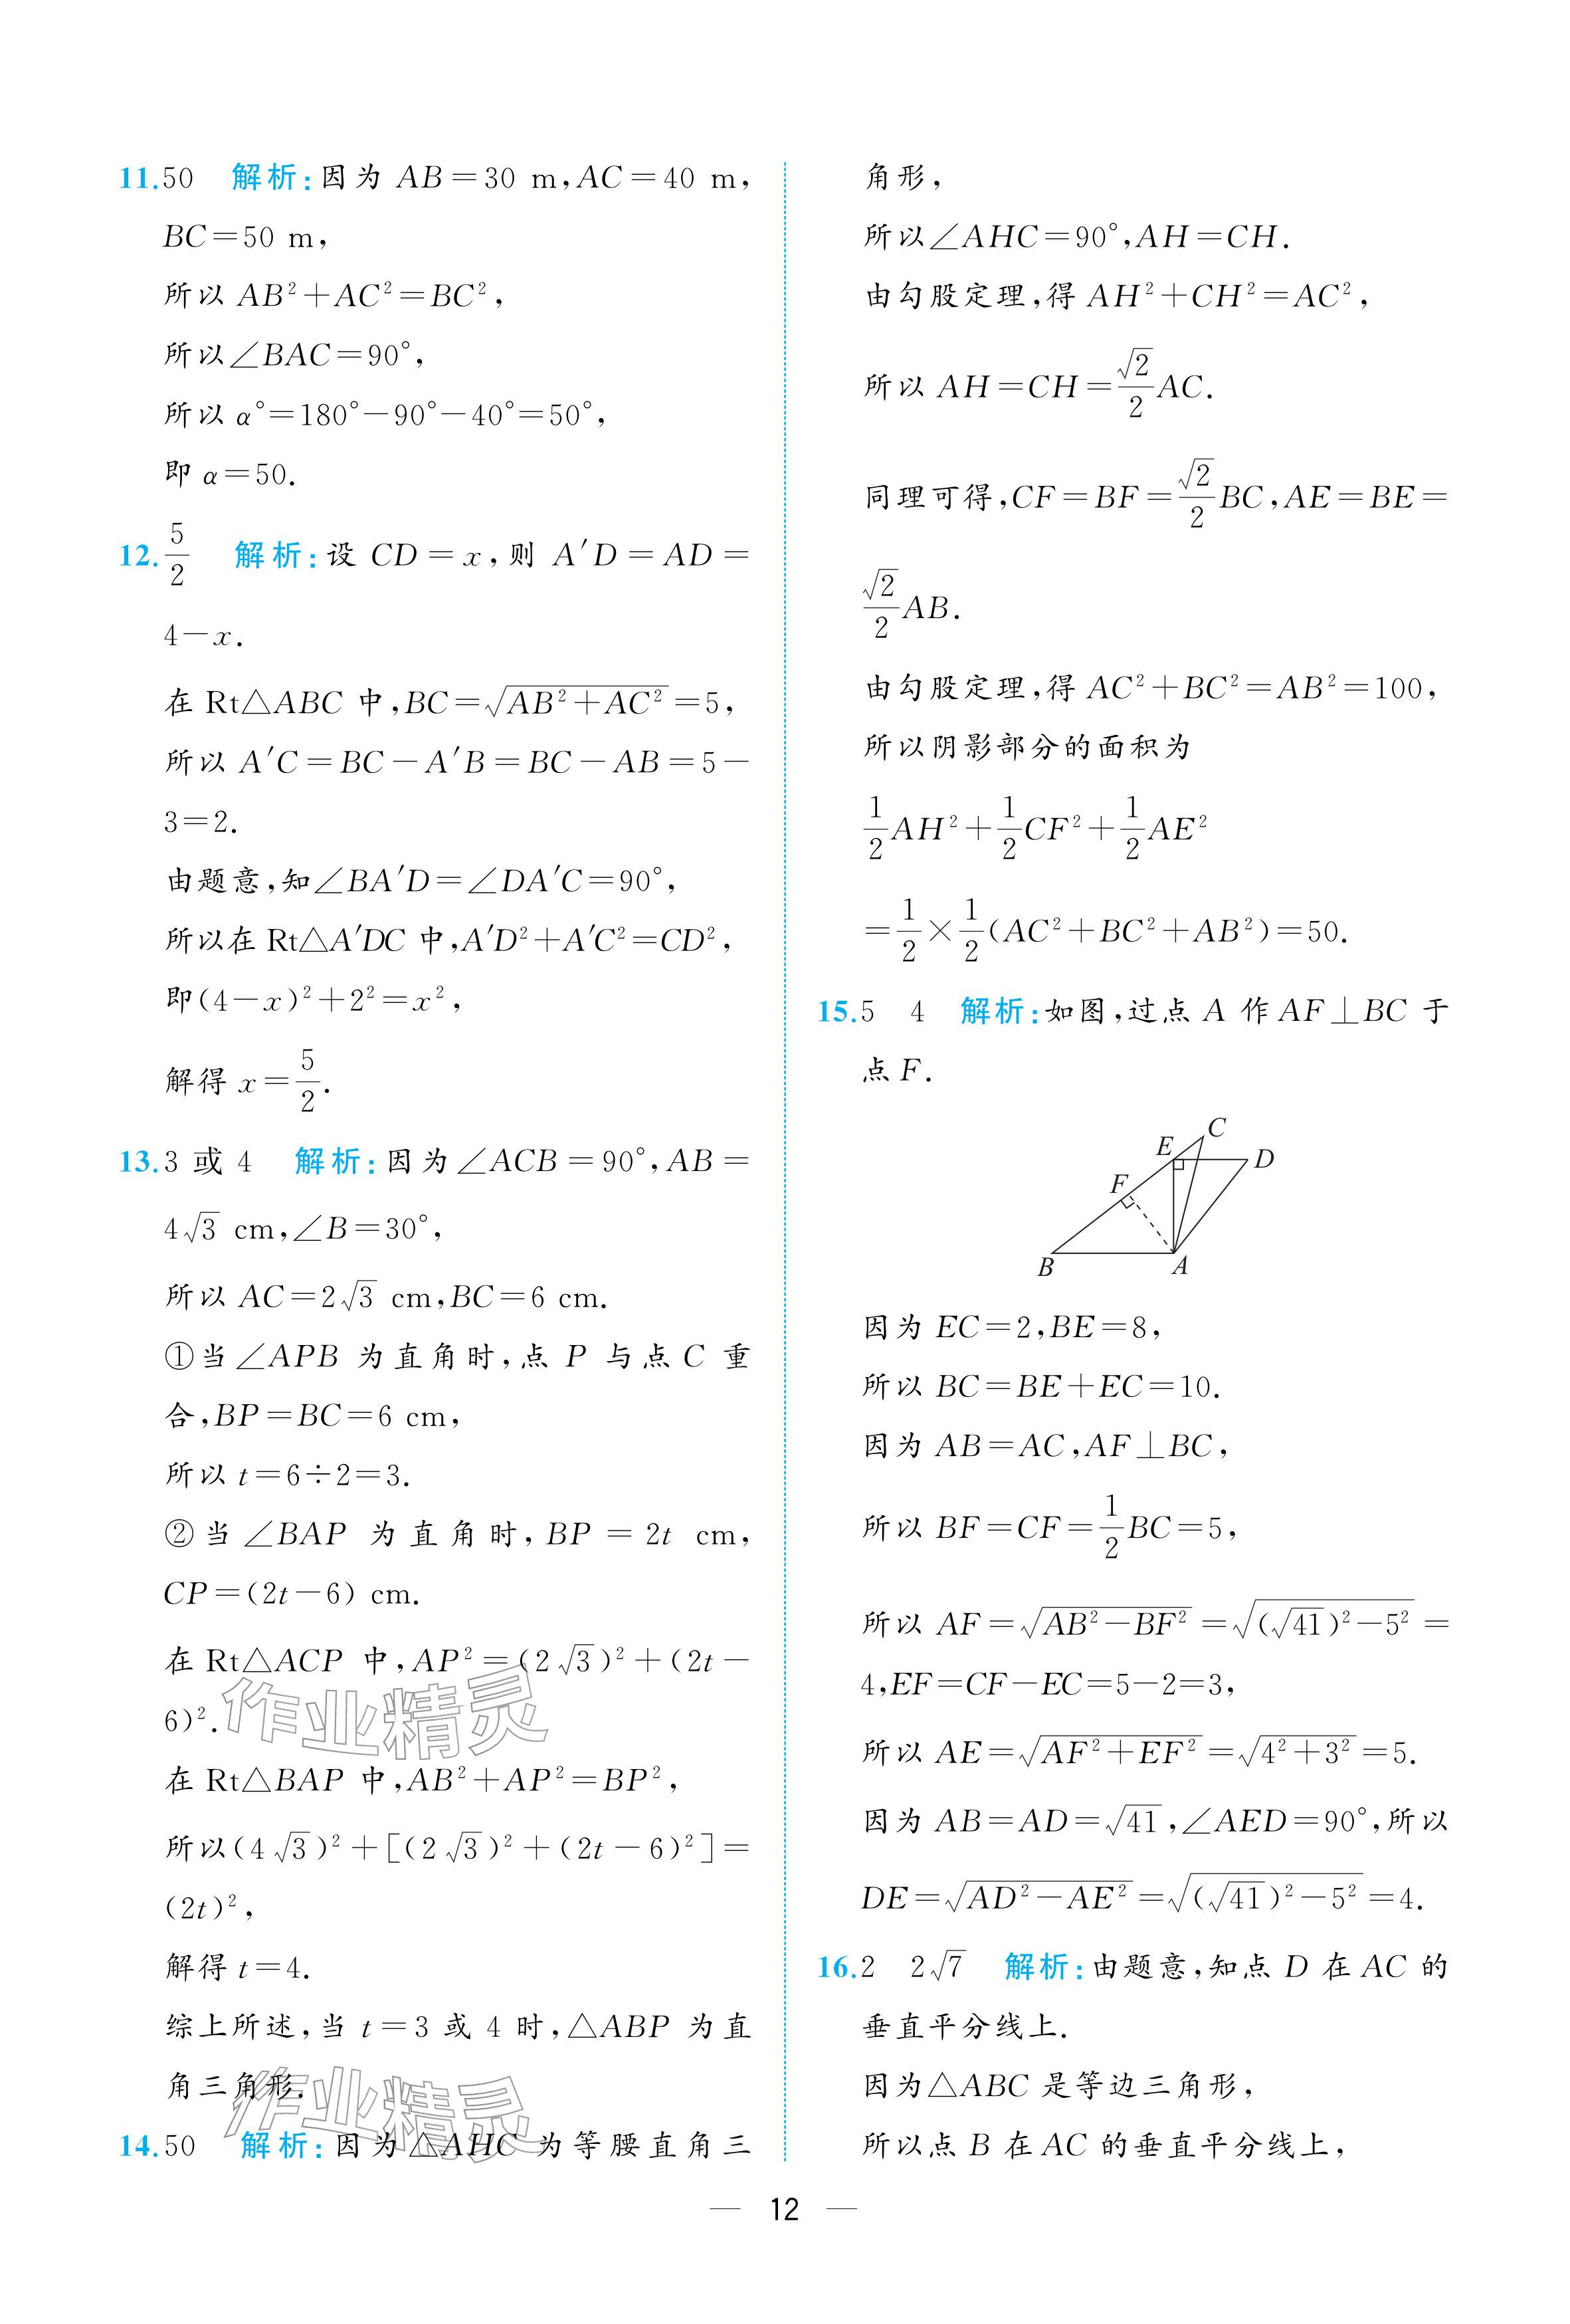 11.50 解析:因为 AB=30 m,AC=40 m,
BC=50 m,
所以 AB²+AC²=BC²,
所以∠BAC=90°,
所以 α°=180°-90°-40°=50°,
即 α=50.
12.5/2 解析:设 CD=x,则 A′D=AD=
4-x.
在 Rt△ABC 中,BC=√(AB²+AC²)=5,
所以 A′C=BC-A′B=BC-AB=5-
3=2.
由题意,知∠BA′D=∠DA′C=90°,
所以在 Rt△A′DC 中,A′D²+A′C²=CD²,
即(4-x)²+2²=x²,
解得 x=5/2.
13.3 或 4 解析:因为∠ACB=90°,AB=
4√3 cm,∠B=30°,
所以 AC=2√3 cm,BC=6 cm.
①当∠APB 为直角时,点 P 与点 C 重
合,BP=BC=6 cm,
所以 t=6÷2=3.
②当∠BAP 为直角时,BP=2t cm,
CP=(2t-6) cm.
在 Rt△ACP 中,AP²=(2√3)²+(2t-
6)².
在 Rt△BAP 中,AB²+AP²=BP²,
所以(4√3)²+[(2√3)²+(2t-6)²]=
(2t)²,
解得 t=4.
综上所述,当 t=3 或 4 时,△ABP 为直
角三角形.
14.50 解析:因为△AHC 为等腰直角三
角形,
所以∠AHC=90°,AH=CH.
由勾股定理,得 AH²+CH²=AC²,
所以 AH=CH=√2/2 AC.
同理可得,CF=BF=√2/2 BC,AE=BE=
√2/2 AB.
由勾股定理,得 AC²+BC²=AB²=100,
所以阴影部分的面积为
1/2 AH²+1/2 CF²+1/2 AE²
=1/2×1/2(AC²+BC²+AB²)=50.
15.5 4 解析:如图,过点 A 作 AF⊥BC 于
点 F.
C
E
D
F
B
A
因为 EC=2,BE=8,
所以 BC=BE+EC=10.
因为 AB=AC,AF⊥BC,
所以 BF=CF=1/2 BC=5,
所以 AF=√(AB²-BF²)=√((√41)²-5²)=
4,EF=CF-EC=5-2=3,
所以 AE=√(AF²+EF²)=√(4²+3²)=5.
因为 AB=AD=√41,∠AED=90°,所以
DE=√(AD²-AE²)=√((√41)²-5²)=4.
16.2 2√7 解析:由题意,知点 D 在 AC 的
垂直平分线上.
因为△ABC 是等边三角形,
所以点 B 在 AC 的垂直平分线上,
作业精灵
作业精灵
— 12 —